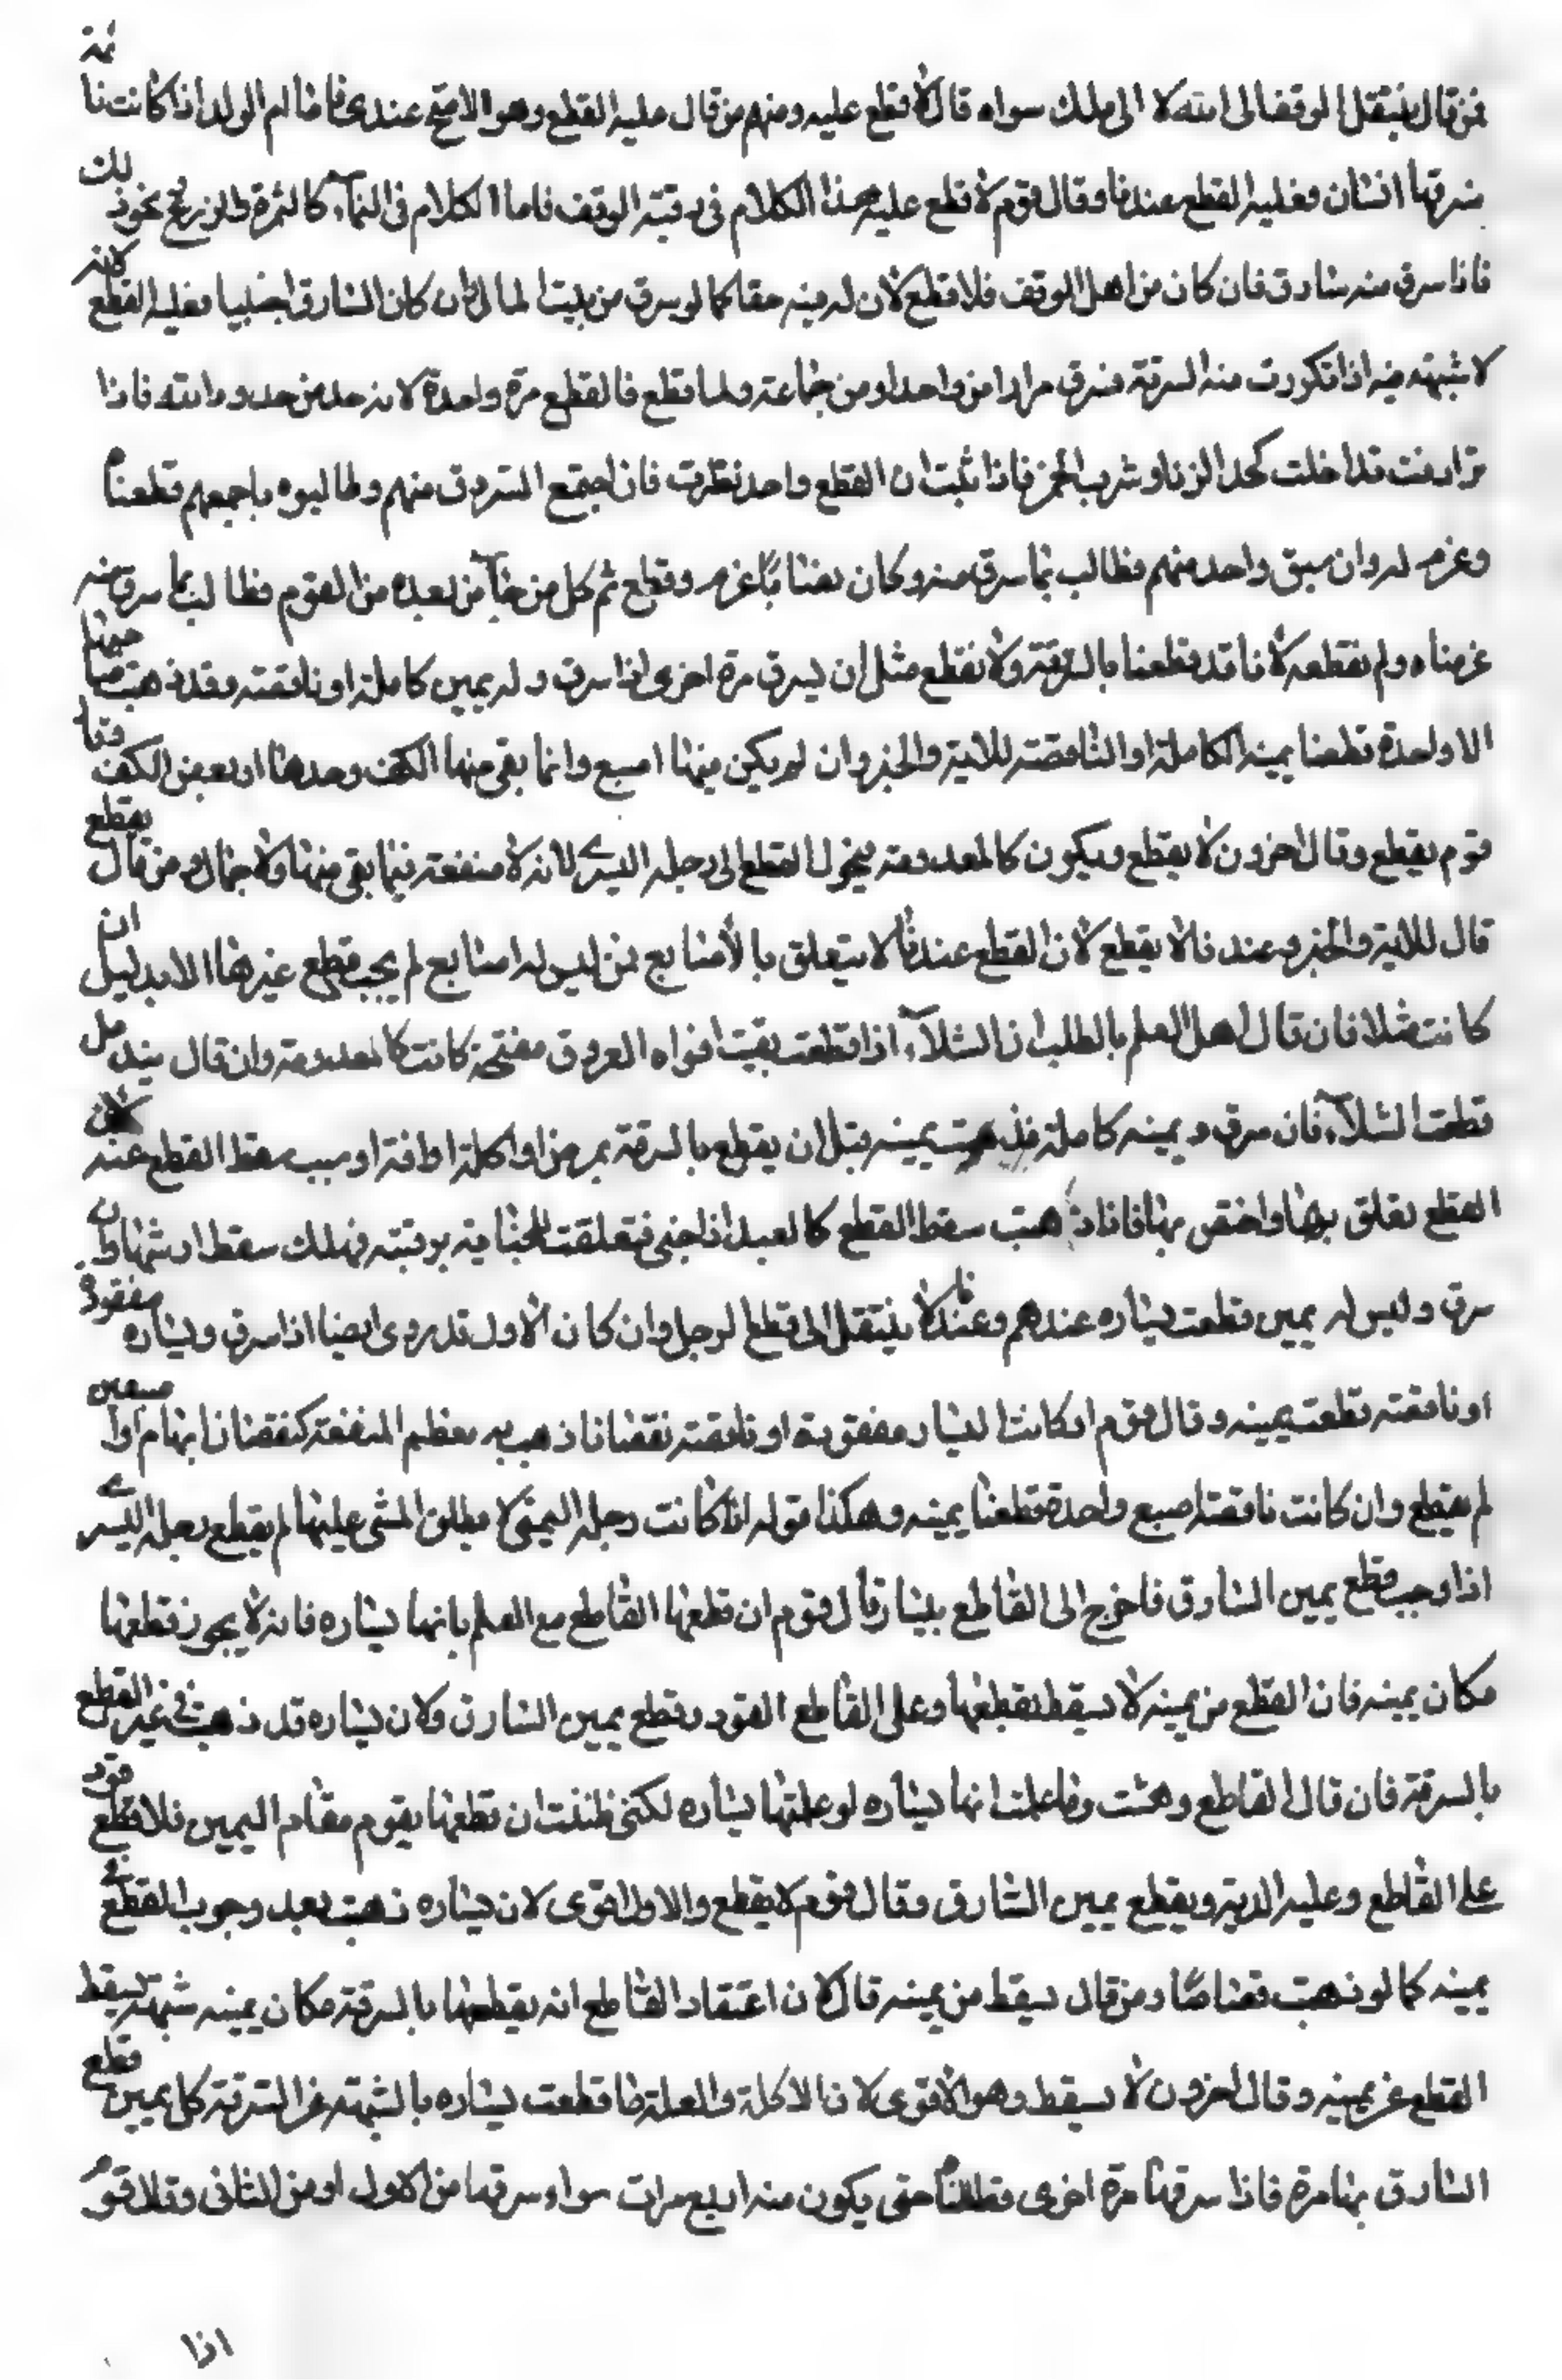 فمن قال ينتقل الوقف الى الله لا الى ملك سواه قال لا قطع عليه ومنهم من قال عليه القطع وهو الاصح عندنا فاما ام الولد اذا كانت نائمة
فسرقها انسان فعليه القطع عندنا وقال قوم لا قطع عليه هذا الكلام في رقبة الوقف فاما الكلام في النماء كالثمرة والزرع ونحو ذلك
فاذا سرق منه سارق فان كان من اهل الوقف فلا قطع لان له فيه حقا كما لو سرق من بيت المال وان كان السارق اجنبيا فعليه القطع لانه
لا شبهة فيه اذا تكررت منه السرقة فسرق مرارا من واحد او من جماعة ولما قطع فالقطع مرة واحدة لانه حد من حدود الله فاذا
ترادفت تداخلت كحد الزنا وشرب الخمر فاذا ثبت ان القطع واحد نظرت فان اجتمع المسروق منهم وطالبوه باجمعهم قطعناه
وغرم لهم وان سبق واحد منهم فطالب بما سرق منه وكان نصابا غرم وقطع ثم كل من جاء من بعده من القوم فطالب بما سرق منه
غرمناه ولم نقطعه لانا قد قطعنا بالسرقة ولا نقطع مثل ان يسرق مرة اخرى اذا سرق وله يمين كاملة او ناقصة وقد ذهبت اصابعها
الا واحدة قطعنا يمينه الكاملة او الناقصة للاية والخبر وان لم يكن فيها اصبع وانما بقي منها الكف وحدها او بعض الكف قال
قوم يقطع وقال اخرون لا يقطع ويكون كالمعدومة فيحول القطع الى رجله اليسرى لانه لا منفعة فيما بقي منها ولا جمال ومن قال يقطع
قال للاية والخبر وعندنا لا يقطع لان القطع عندنا لا يتعلق الا بالاصابع فمن ليس له اصابع لم يجب قطع غيرها الا بدليل ان
كانت شلا فان قال اهل العلم بالطب ان الشلاء اذا قطعت بقيت افواه العروق مفتحة كانت كالمعدومة وان قال يندمل
قطعت الشلاء فان سرق ويمينه كاملة فذهبت يمينه قبل ان يقطع بالسرقة بمرض او اكلة او افة او سبب سقط القطع عنه لان
القطع تعلق بها واختص بها فاذا ذهبت سقط القطع كالعبد اذا جنى فتعلقت الجناية برقبته فهلك سقط ارشها وان
سرق وليس له يمين قطعت يساره عندهم وعندنا ينتقل الى قطع الرجل وان كان الاول قد روى ايضا اذا سرق ويساره مفقودة
او ناقصة قطعت يمينه وقال قوم ان كانت اليسار مفقودة او ناقصة نقصانا ذهب به معظم المنفعة كنقصان ابهام او اصبعين
لم يقطع وان كانت ناقصة اصبع واحدة قطعنا يمينه وهكذا قوله اذا كانت رجله اليمنى لا يطيق المشي عليها لم يقطع رجله اليسرى
اذا وجب قطع يمين السارق فاخرج الى القاطع يساره قال قوم ان قطعها القاطع مع العلم بانها يساره فانه لا يجوز قطعها
مكان يمينه فان القطع من يمينه لا يسقط بقطعها وعلى القاطع القود وقطع يمين السارق ولان يساره قد ذهبت في غير القطع
بالسرقة فان قال القاطع دهشت وما علمت انها يساره او علمتها يساره لكني ظننت ان قطعها يقوم مقام اليمين فلا قطع قود
على القاطع وعليه الدية ويقطع يمين السارق وقال قوم لا يقطع والاول اقوى لان يساره ذهبت بعد وجوب القطع في
يمينه كما لو ذهبت قصاصا ومن قال يسقط من يمينه قال لان اعتقاد القاطع انه يقطعها بالسرقة مكان يمينه شبهة يسقط
القطع عن يمينه وقال اخرون لا يسقط وهو الاقوى لان الاكلة والعلة ما قطعت يساره بالشبهة عن السرقة كل يمين قطع
السارق بها مرة فاذا سرقها مرة اخرى قطعناه حتى يكون منه اربع مرات سواء سرقها من الاول او من الثاني وقال قوم
اذا